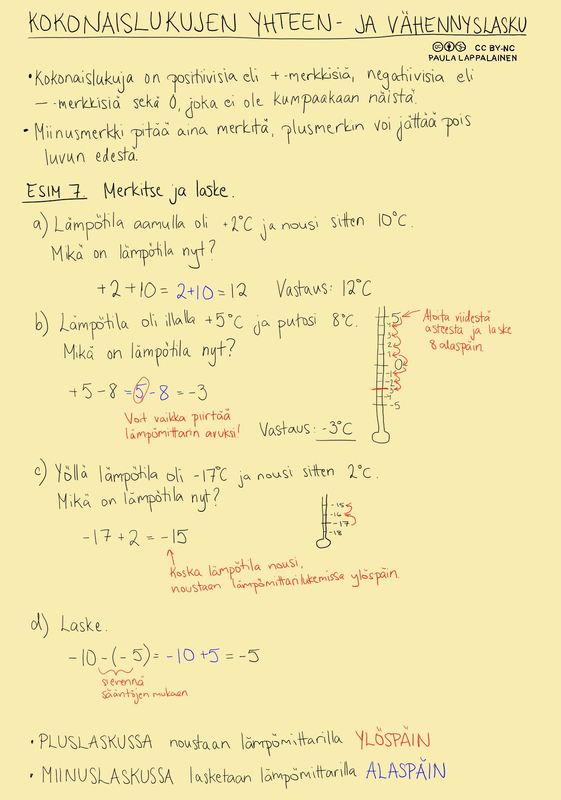 KOKONAISLUKUJEN YHTEEN- JA VÄHENNYSLASKU
CC BY-NC
PAULA LAPPALAINEN
• Kokonaislukuja on positiivisia eli +-merkkisiä, negatiivisia eli
— -merkkisiä sekä 0, joka ei ole kumpaakaan näistä.
• Miinusmerkki pitää aina merkitä, plusmerkin voi jättää pois
luvun edestä.
ESIM 7. Merkitse ja laske.
a) Lämpötila aamulla oli +2°C ja nousi sitten 10°C.
Mikä on lämpötila nyt?
+2+10 = 2+10 = 12 Vastaus: 12°C
b) Lämpötila oli illalla +5°C ja putosi 8°C.
Mikä on lämpötila nyt?
+5-8 = 5-8 = -3
Voit vaikka piirtää
lämpömittarin avuksi!
Vastaus: -3°C
5
4
3
2
1
0
-1
-2
-3
-4
-5
Aloita viidestä
asteesta ja laske
8 alaspäin
c) Yöllä lämpötila oli -17°C ja nousi sitten 2°C.
Mikä on lämpötila nyt?
-17+2 = -15
-15
-16
-17
-18
Koska lämpötila nousi,
noustaan lämpömittarilukemissa ylöspäin.
d) Laske.
-10-(-5) = -10+5 = -5
sievennä
sääntöjen mukaan
• PLUSLASKUSSA noustaan lämpömittarilla YLÖSPÄIN
• MIINUSLASKUSSA lasketaan lämpömittarilla ALASPÄIN